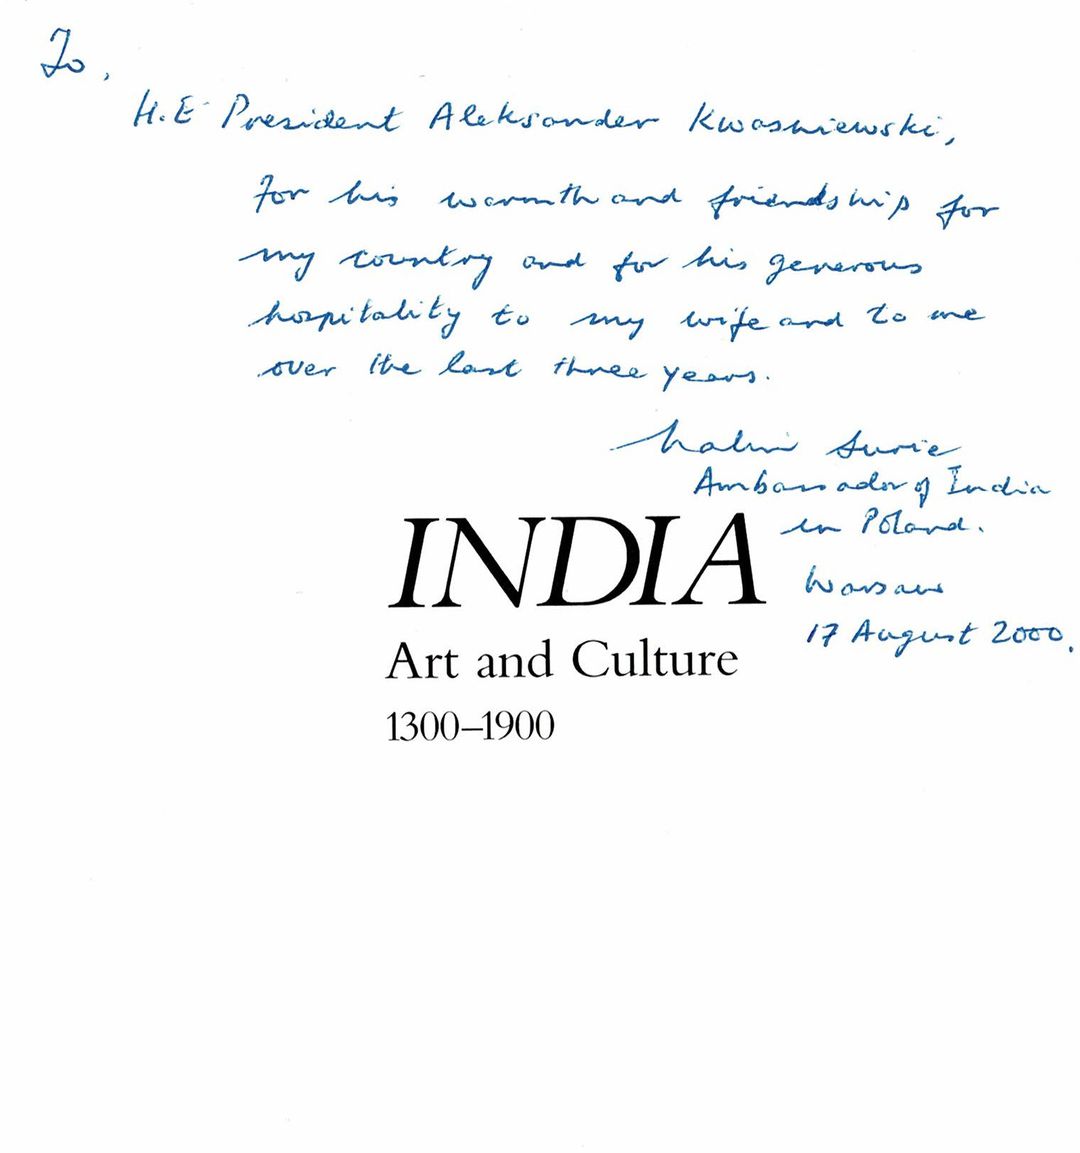 To,
H.E President Aleksander Kwasniewski,
For his warmth and friendship for
my country and for his generous
hospitality to my wife and to me
over the last three years.
Nalin Surie
Ambassador of India
in Poland.
Warsaw
17 August 2000.
INDIA
Art and Culture
1300–1900